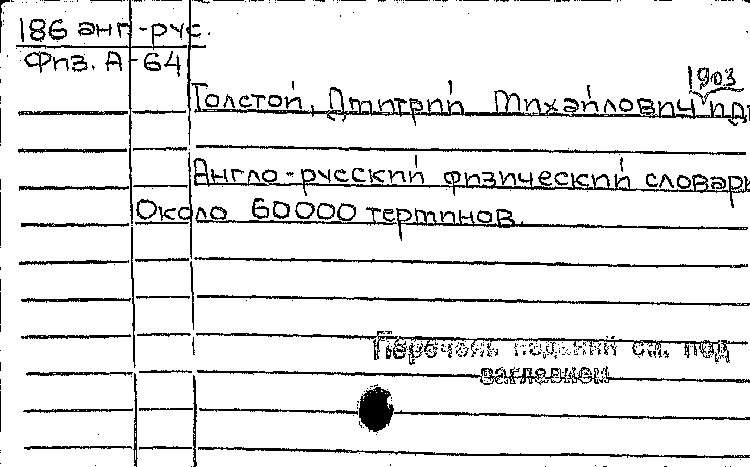 186 англ-рус.
Физ. А-64
1903
Толстой, Дмитрий Михайлович
Англо-русский физический словарь
Около 60000 терминов.
Перечень изданий см. под
заглавием